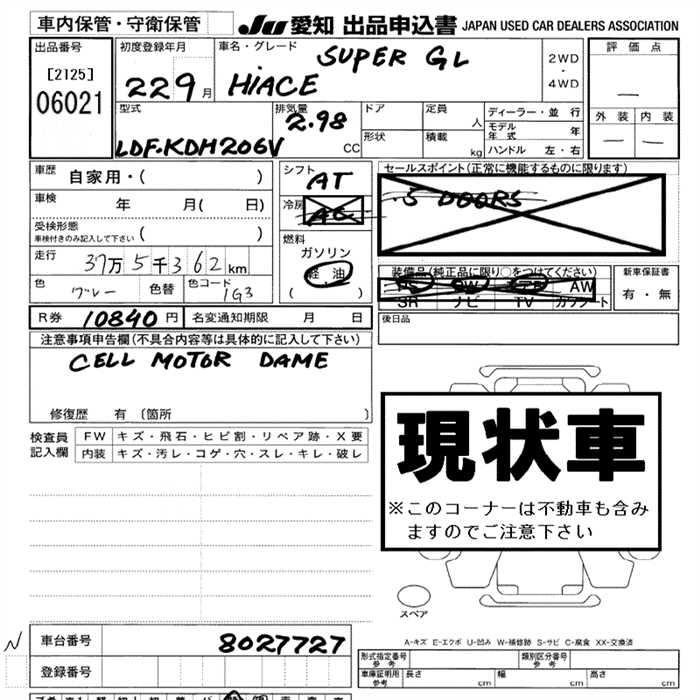 車内保管・守衛保管 JU 愛知 出品申込書 JAPAN USED CAR DEALERS ASSOCIATION
出品番号 初度登録年月 車名・グレード SUPER GL 2WD・4WD 評価点
[2125] 22 9月 HiACE —
06021 外装 内装
型式 排気量 ドア 定員 人 ディーラー・並行 — —
LDF-KDH206V 2.98 CC 形状 積載 kg モデル年式 年
ハンドル 左・右
車歴 自家用・( ) シフト AT セールスポイント(正常に機能するものに限ります)
車検 年 月( 日) 冷房 AC .5 DOORS
受検形態 ( )
車検付きのみ記入して下さい
燃料
走行 37万5千362km ガソリン 装備品(純正品に限り○をつけてください) 新車保証書
色 グレー 色替 色コード 1G3 軽油 PS PW AW 有・無
( ) SR ナビ TV カッシュート
R券 10840円 名変通知期限 月 日 後日品
注意事項申告欄(不具合内容等は具体的に記入して下さい)
CELL MOTOR DAME
修復歴 有 〔箇所 〕
検査員記入欄 FW キズ・飛石・ヒビ割・リペア跡・X要
内装 キズ・汚レ・コゲ・穴・スレ・キレ・破レ
現状車
※このコーナーは不動車も含み
ますのでご注意下さい
スペア
A-キズ E-エクボ U-凹み W-補修跡 S-サビ C-腐食 XX-交換済
N 車台番号 8027727
登録番号
形式指定番号 参考 類別区分番号 参考
車庫証明用 参考 長さ cm 幅 cm 高さ cm